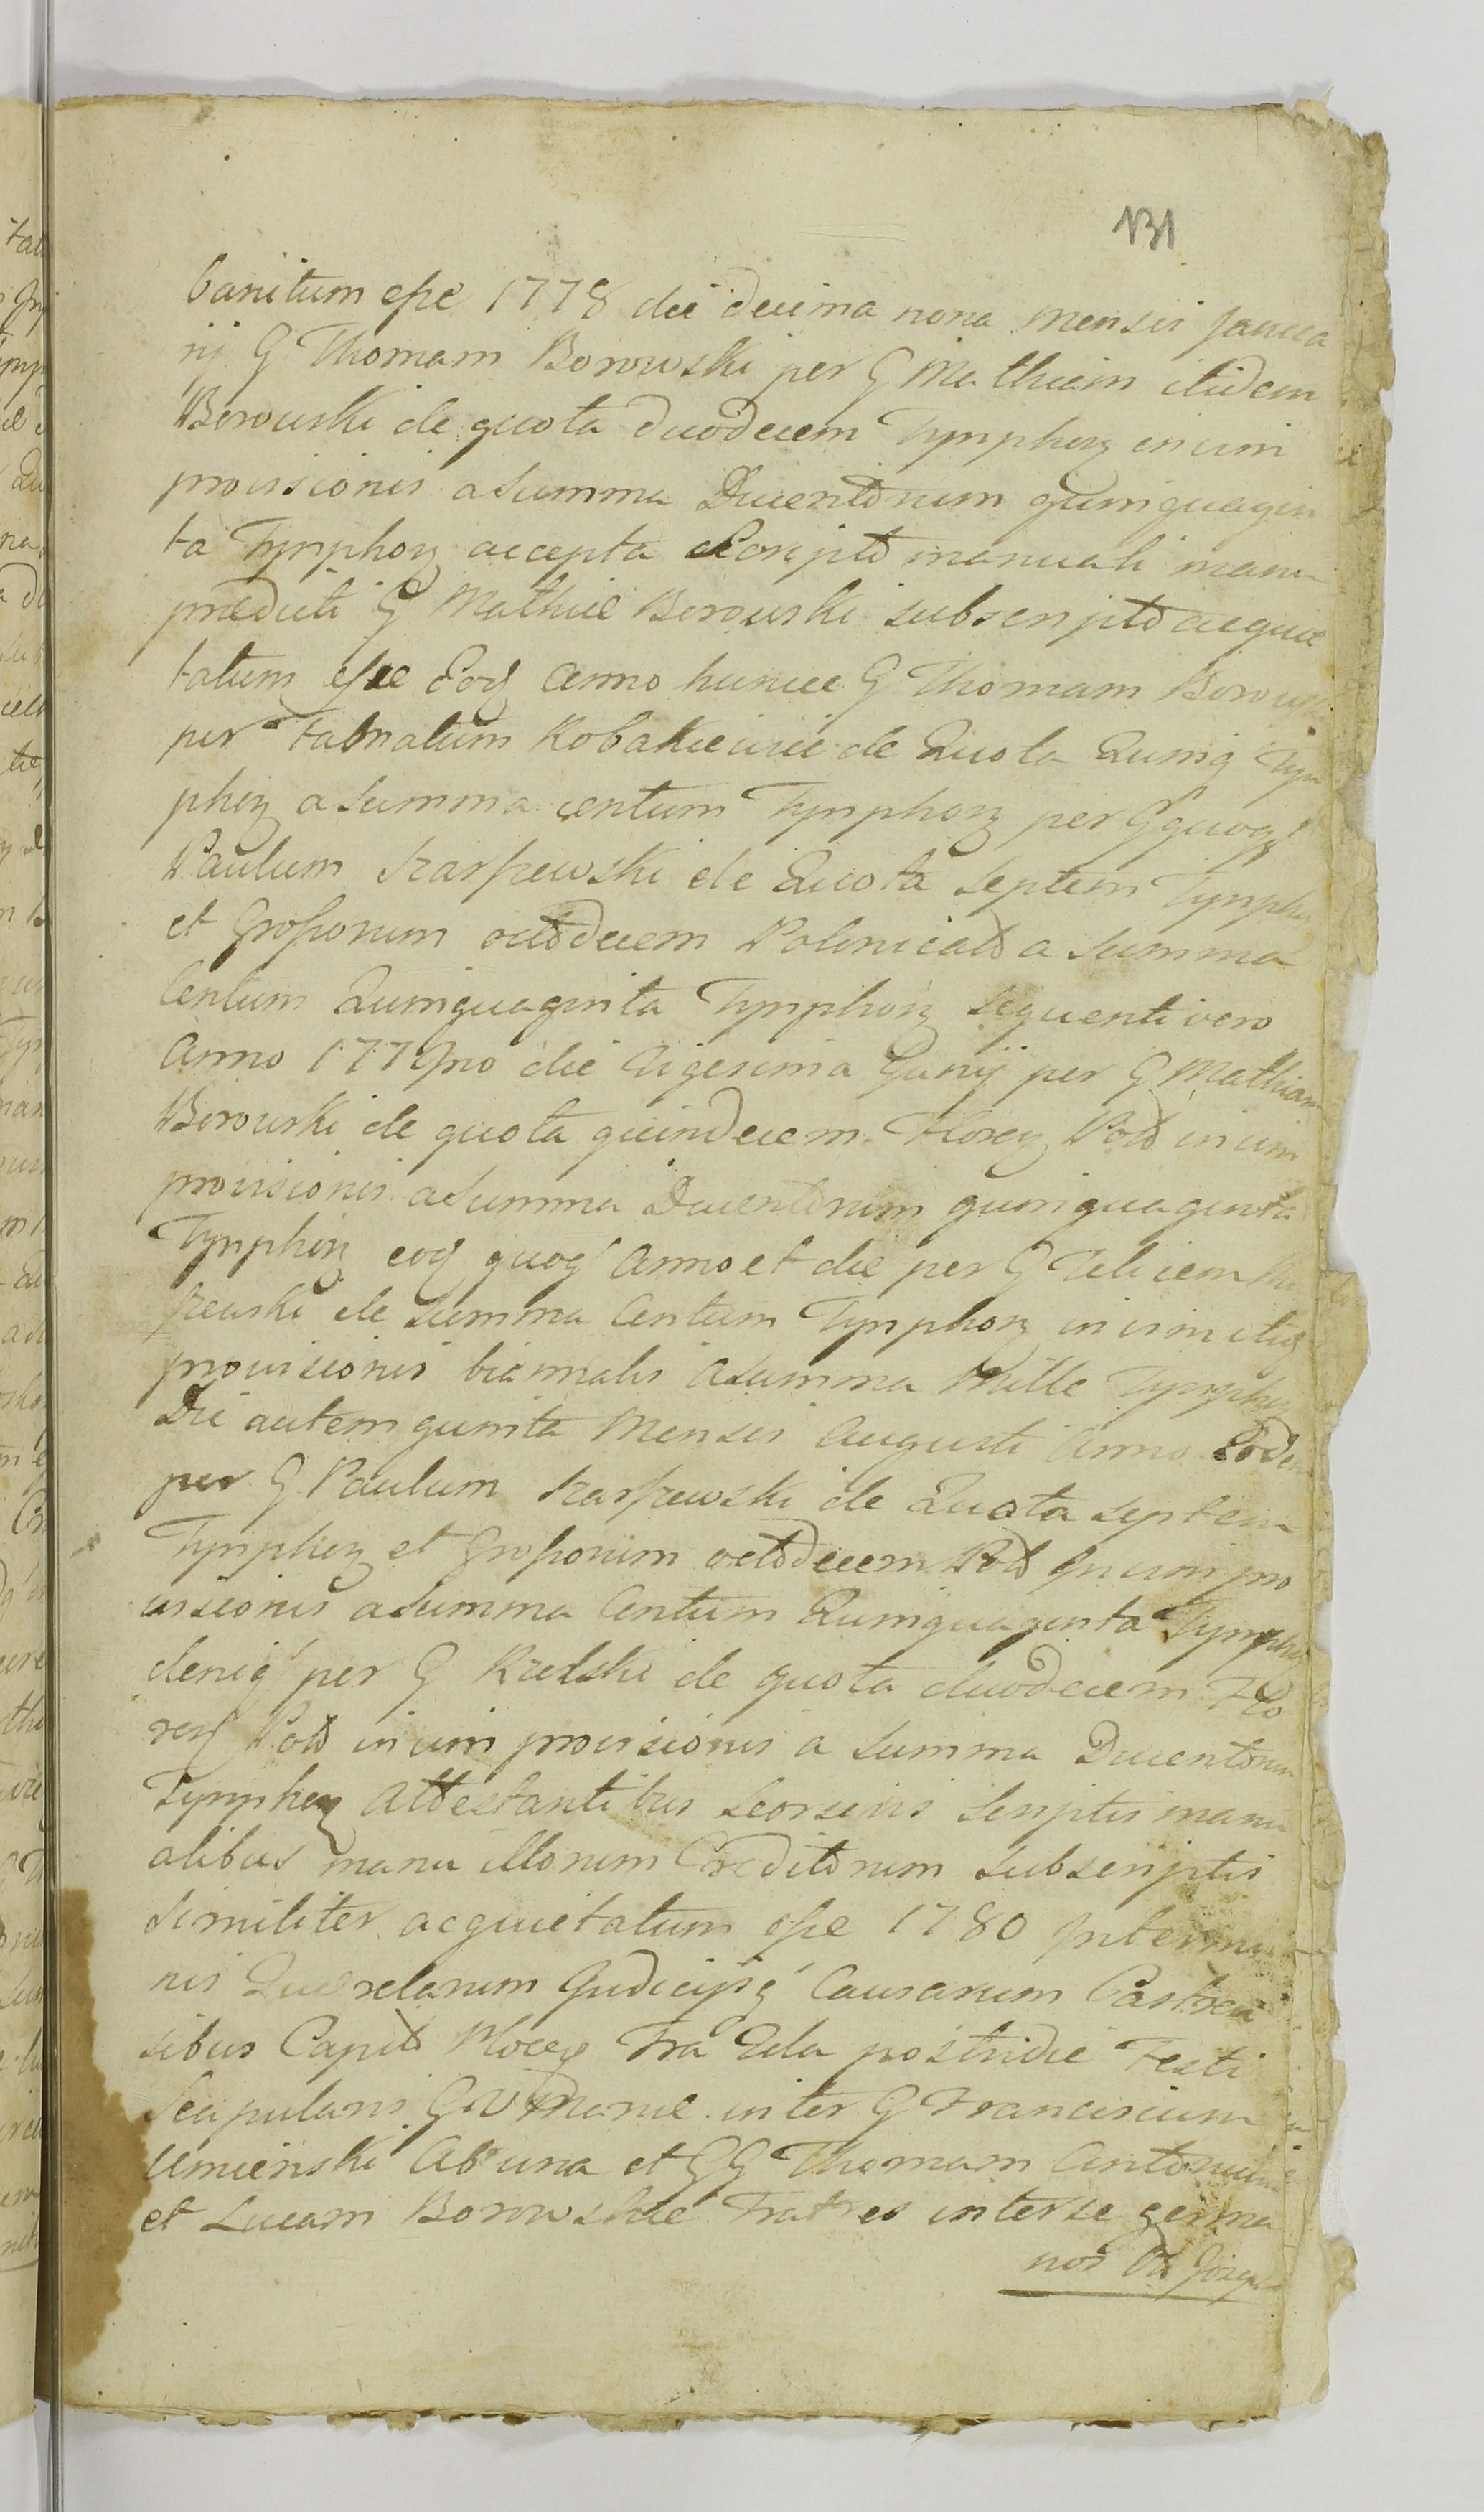 131
banitum esse 1778 die decima nona Mensis Janua
rij G Thomam Borowski per G Mathiam itidem
Borowski de quota duodecem Tympho℞ in vim
provisionis a Summa Ducentorum quinquagin
ta Tympho℞ accepta Scripto manuali manu
prædicti G Mathiæ Borowski subscripto acquie
tatum esse Eoq̃ Anno hunce G Thomam Borowski
per Fabnatum Kobakiewicz de Quota Quinq̃ Tym
pho℞ a Summa Centum Tympho℞ per G quoq̃
Paulum de Quota Septem Tympho
et Grossorum octodecem Polonical a Summa
Centum Quinquaginta Tympho℞ sequenti vero
Anno 1779no die Vigesima Junij per G Mathiam
Borowski de quota quindecem Flore℞ Pol in vim
provisionis a Summa Ducentorum quinquaginta
Tympho℞ eoq̃ quoq̃ Anno et die per G Felicem
de Summa Centum Tympho℞ in vim itiq̃
provisionis biannalis a Summa Mille Tympho
Die autem quinta Mensis Augusti Anno Eodem
per G Paulum de Quota septem
Tympho℞ et Grossorum octodecem Pol in vim pro
visionis a Summa Centum Quinquaginta Tympho
deniq̃ per G de quota duodecem Flo
ren Pol in vim provisionis a Summa Ducentorum
Tympho℞ Attestantibus Seorsivis Scriptis manu
alibus manu illorum Creditorum subscriptis
similiter acquietatum esse 1780 In termi
nis Querelarum Judicijsq̃ Causarum Castren
sibus Capit Plocen Fra 2da postridie Festi
Scapularis G V Mariæ inter G Franciscum
Umieński Ab una et GG Thomam Antonium
et Lucam Borowskie Fratres inter se germa
nos Ol Joseph